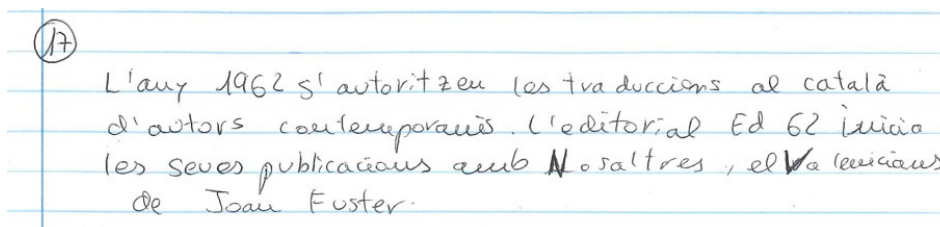 17
L'any 1962 s'autoritzen les traduccions al català
d'autors contemporanis. L'editorial Ed 62 inicia
les seves publicacions amb Nosaltres, el Valencians
de Joan Fuster.